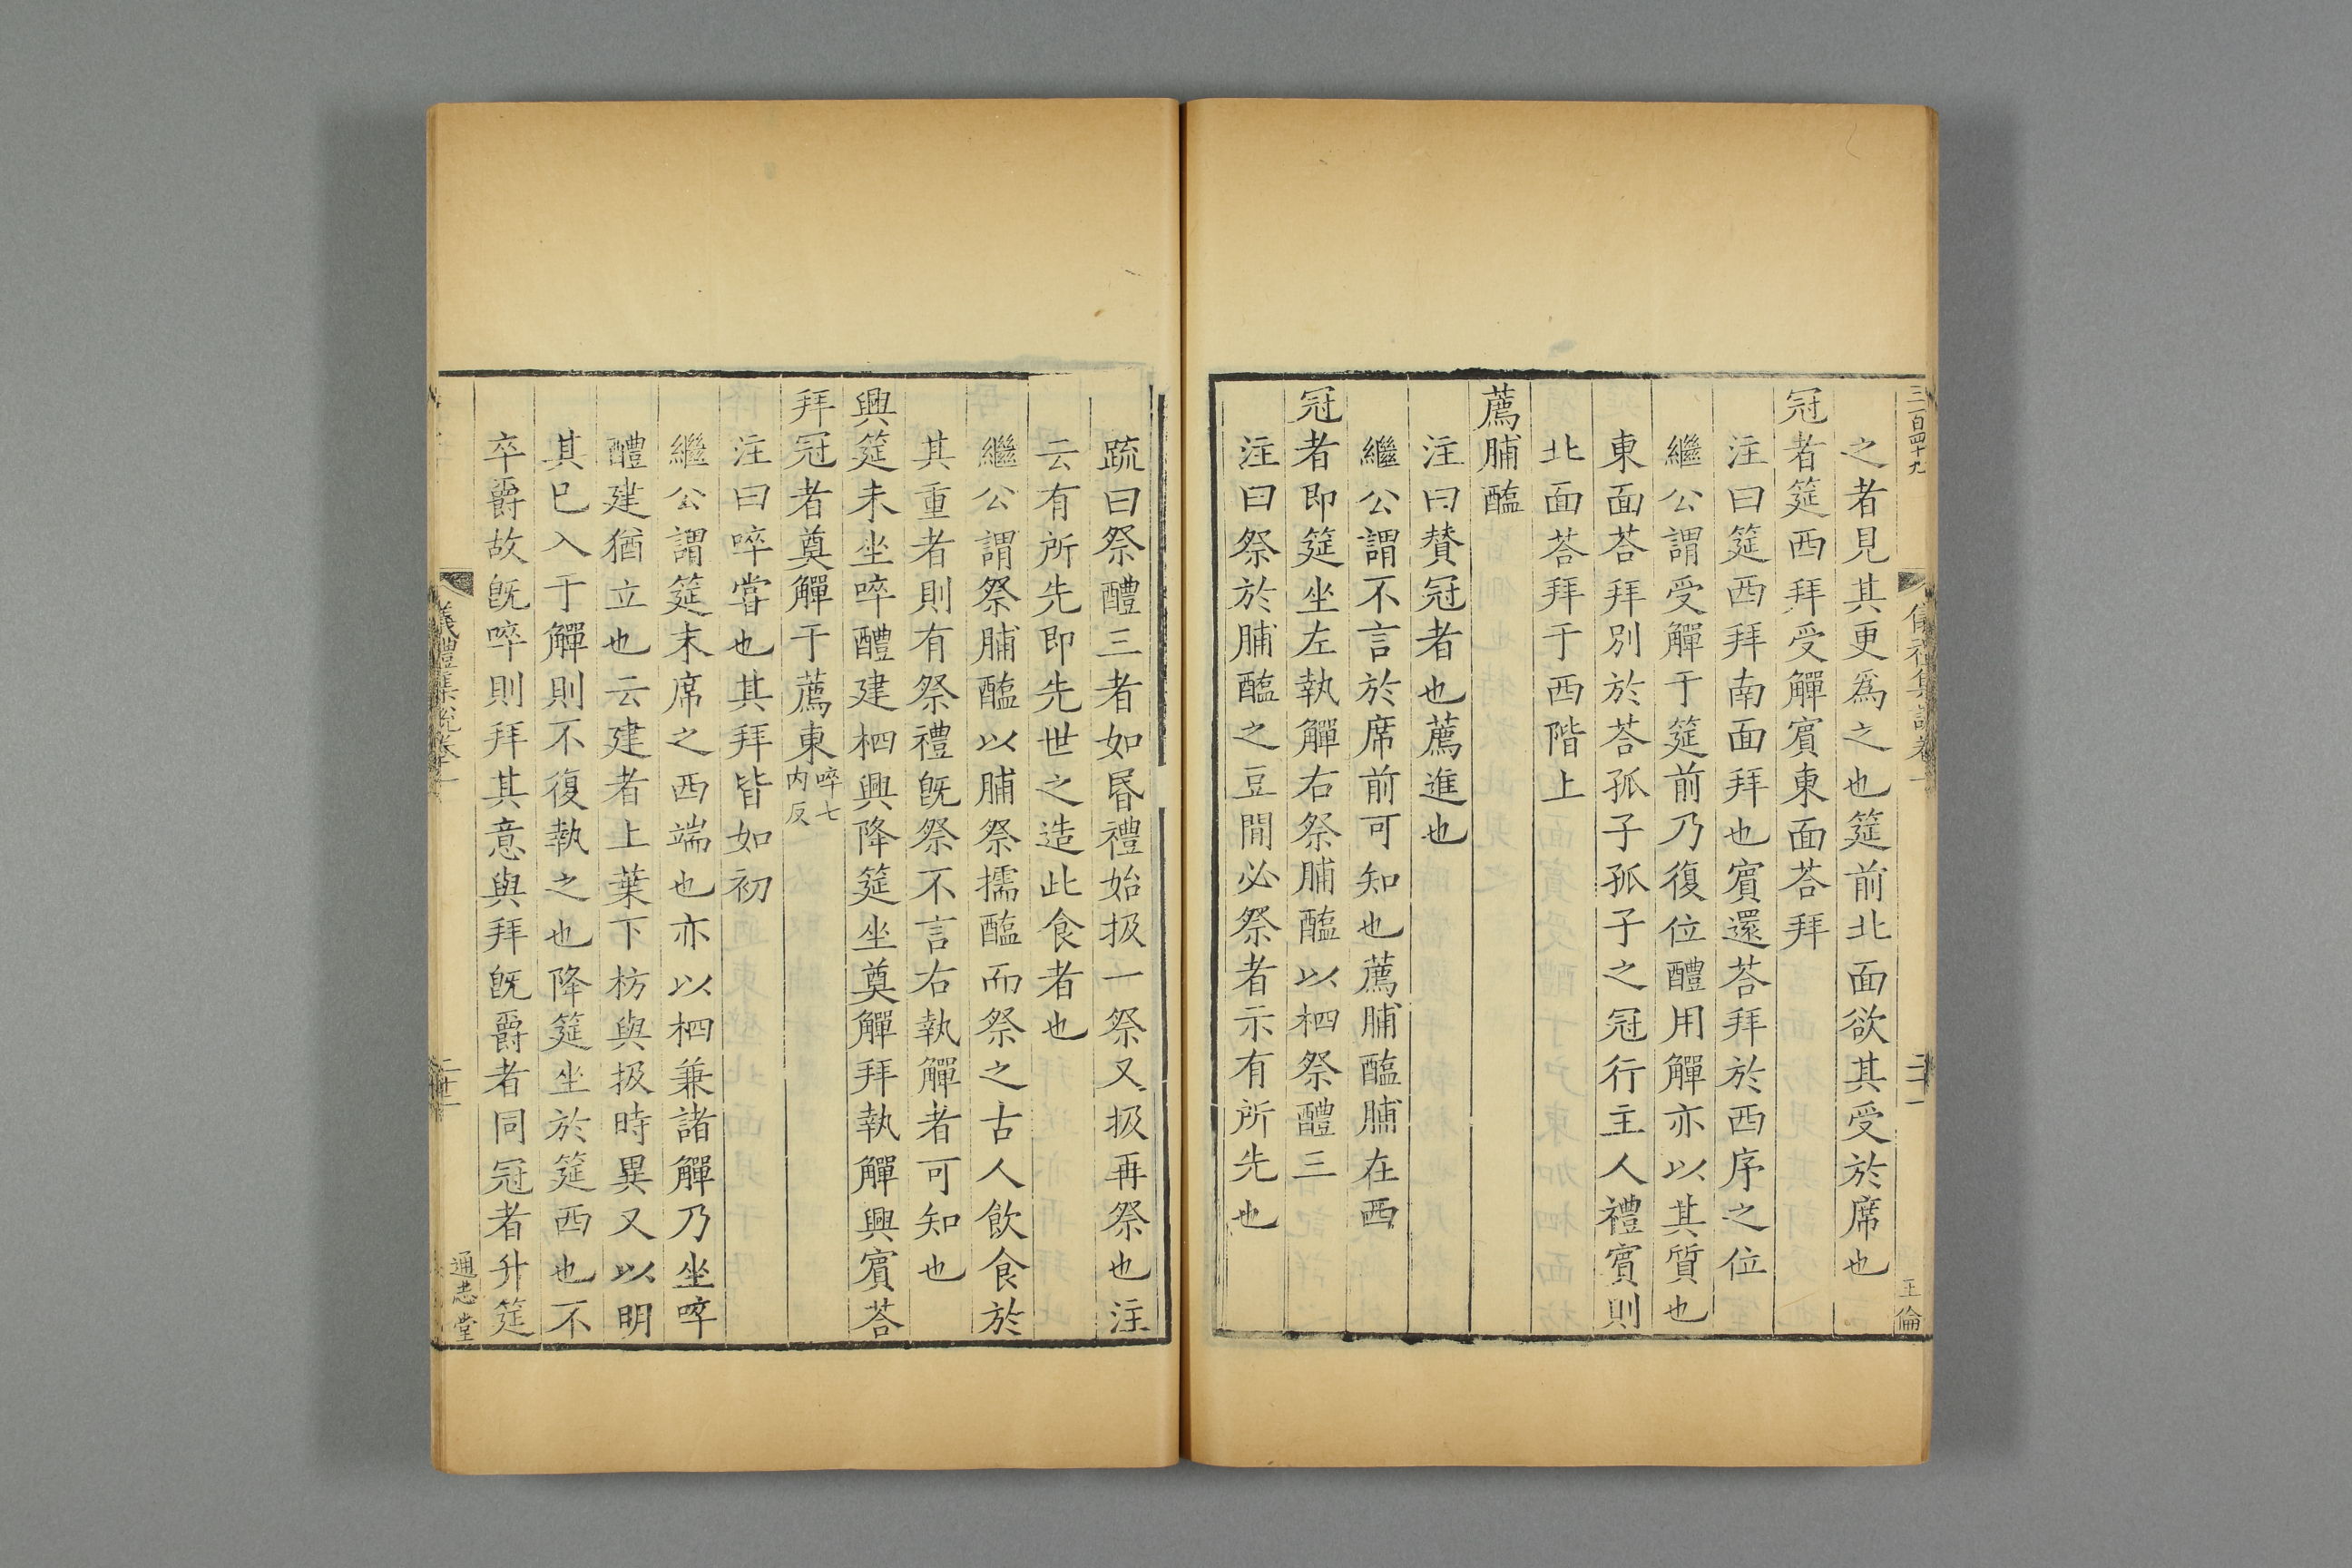 三百四十九
王倫
之者見其更爲之也筵前北面欲其受於席也
冠者筵西拜受觶賓東面荅拜
注曰筵西拜南面拜也賓還荅拜於西序之位
繼公謂受觶于筵前乃復位醴用觶亦以其質也
東面荅拜別於荅孤子孤子之冠行主人禮賓則
北面荅拜于西階上
薦脯醢
注曰賛冠者也薦進也
繼公謂不言於席前可知也薦脯醢脯在西
冠者即筵坐左執觶右祭脯醢以柶祭醴三
注曰祭於脯醢之豆間必祭者示有所先也
疏曰祭醴三者如昏禮始扱一祭又扱再祭也注
云有所先即先世之造此食者也
繼公謂祭脯醢以脯祭擩醢而祭之古人飲食於
其重者則有祭禮旣祭不言右執觶者可知也
興筵末坐啐醴建柶興降筵坐奠觶拜執觶興賓荅
拜冠者奠觶于薦東啐七內反
注曰啐嘗也其拜皆如初
繼公謂筵末席之西端也亦以柶兼諸觶乃坐啐
醴建猶立也云建者上葉下枋與扱時異又以明
其巳入于觶則不復執之也降筵坐於筵西也不
卒爵故旣啐則拜其意與拜旣爵者同冠者升筵
儀禮集說卷一
通志堂